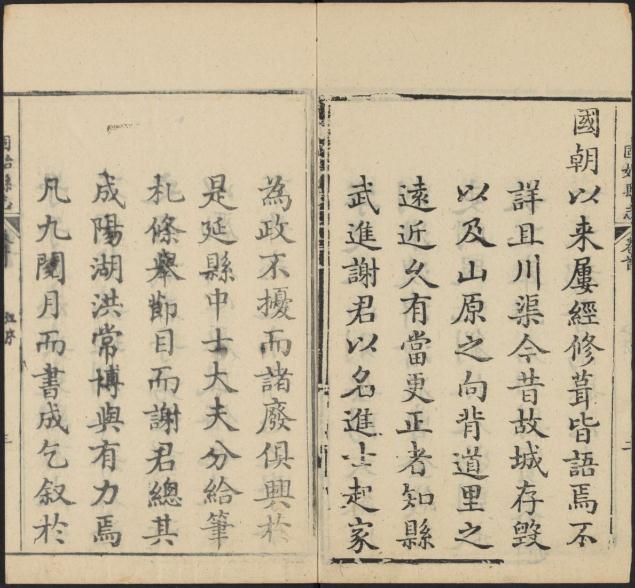 國朝以来屢經修葺皆語焉不
詳且川渠今昔故城存毀
以及山原之向背道里之
遠近久有當更正者知縣
武進謝君以名進士起家
為政不擾而諸廢俱興於
是延縣中士大夫分給筆
札條舉節目而謝君總其
成陽湖洪常博與有力焉
凡九閱月而書成乞叙於
固始縣志
卷首
二
固始縣志
卷首
序
三